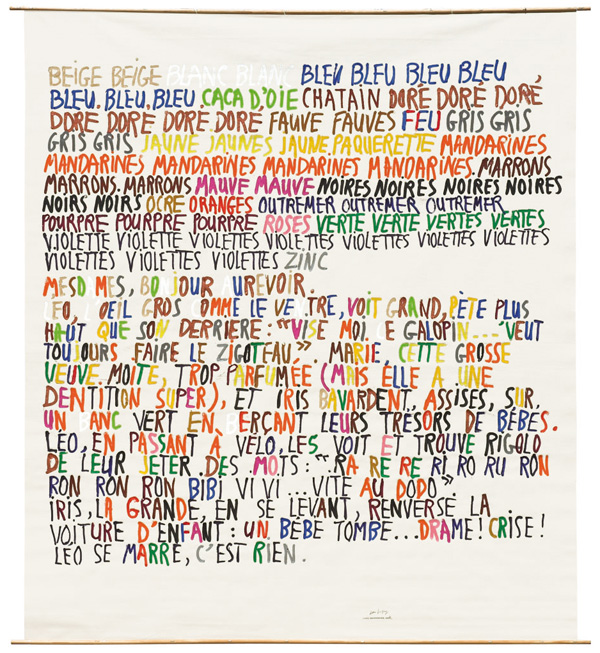 BEIGE BEIGE BLANC BLANC BLEU BLEU BLEU BLEU
BLEU. BLEU. BLEU CACA D'OIE CHATAIN DORÉ DORÉ DORÉ
DORE DORE DORE DORE FAUVE FAUVES FEU GRIS GRIS
GRIS GRIS JAUNE JAUNES JAUNE PAQUERETTE MANDARINES
MANDARINES MANDARINES MANDARINES MANDARINES. MARRONS
MARRONS. MARRONS MAUVE MAUVE NOIRES NOIRES NOIRES NOIRES
NOIRS NOIRS OCRE ORANGES OUTREMER OUTREMER OUTREMER
POURPRE POURPRE POURPRE ROSES VERTE VERTE VERTES VERTES
VIOLETTE VIOLETTE VIOLETTES VIOLETTES VIOLETTES VIOLETTES VIOLETTES
VIOLETTES VIOLETTES VIOLETTES ZINC
MESDAMES, BONJOUR AUREVOIR.
LÉO, L'OEIL GROS COMME LE VENTRE, VOIT GRAND, PÈTE PLUS
HAUT QUE SON DERRIERE: "VISE MOI LE GALOPIN... VEUT
TOUJOURS FAIRE LE ZIGOTEAU". MARIE, CETTE GROSSE
VEUVE MOITE, TROP PARFUMÉE (MAIS ELLE A UNE
DENTITION SUPER), ET IRIS BAVARDENT, ASSISES, SUR
UN BANC VERT EN BERÇANT LEURS TRÉSORS DE BÉBÉS.
LÉO, EN PASSANT À VELO, LES VOIT ET TROUVE RIGOLO
DE LEUR JETER DES MOTS: " RA RE RE RI RO RU RON
RON RON RON BIBI VI VI... VITE AU DODO".
IRIS, LA GRANDE, EN SE LEVANT, RENVERSE LA
VOITURE D'ENFANT: UN BÉBÉ TOMBE... DRAME! CRISE!
LEO SE MARRE, C'EST RIEN.